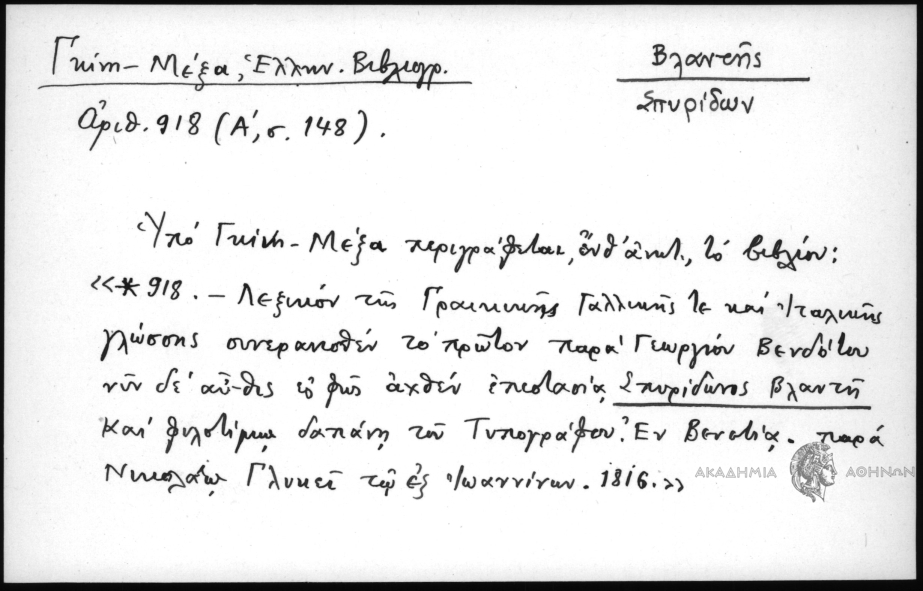 Γκίνη - Μέξα, Ἑλλην. Βιβλιογρ.
Ἀριθ. 918 (Α', σ. 148).
Βλαντῆς
Σπυρίδων
Ὑπό Γκίνη - Μέξα περιγράφεται, ἔνθ' ἀνωτ., τό βιβλίον:
«* 918. - Λεξικόν τῆς Γραικικῆς Γαλλικῆς τε καί Ἰταλικῆς
γλώσσης συνερανισθέν τό πρῶτον παρά Γεωργίου Βενδότου
νῦν δέ αὖθις εἰς φῶς ἀχθέν ἐπιστασίᾳ Σπυρίδωνος Βλαντῆ
καί φιλοτίμῳ δαπάνῃ τοῦ Τυπογράφου. Ἐν Βενετίᾳ. παρά
Νικολάῳ Γλυκεῖ τῷ ἐξ Ἰωαννίνων. 1816.»
ΑΚΑΔΗΜΙΑ ΑΘΗΝΩΝ